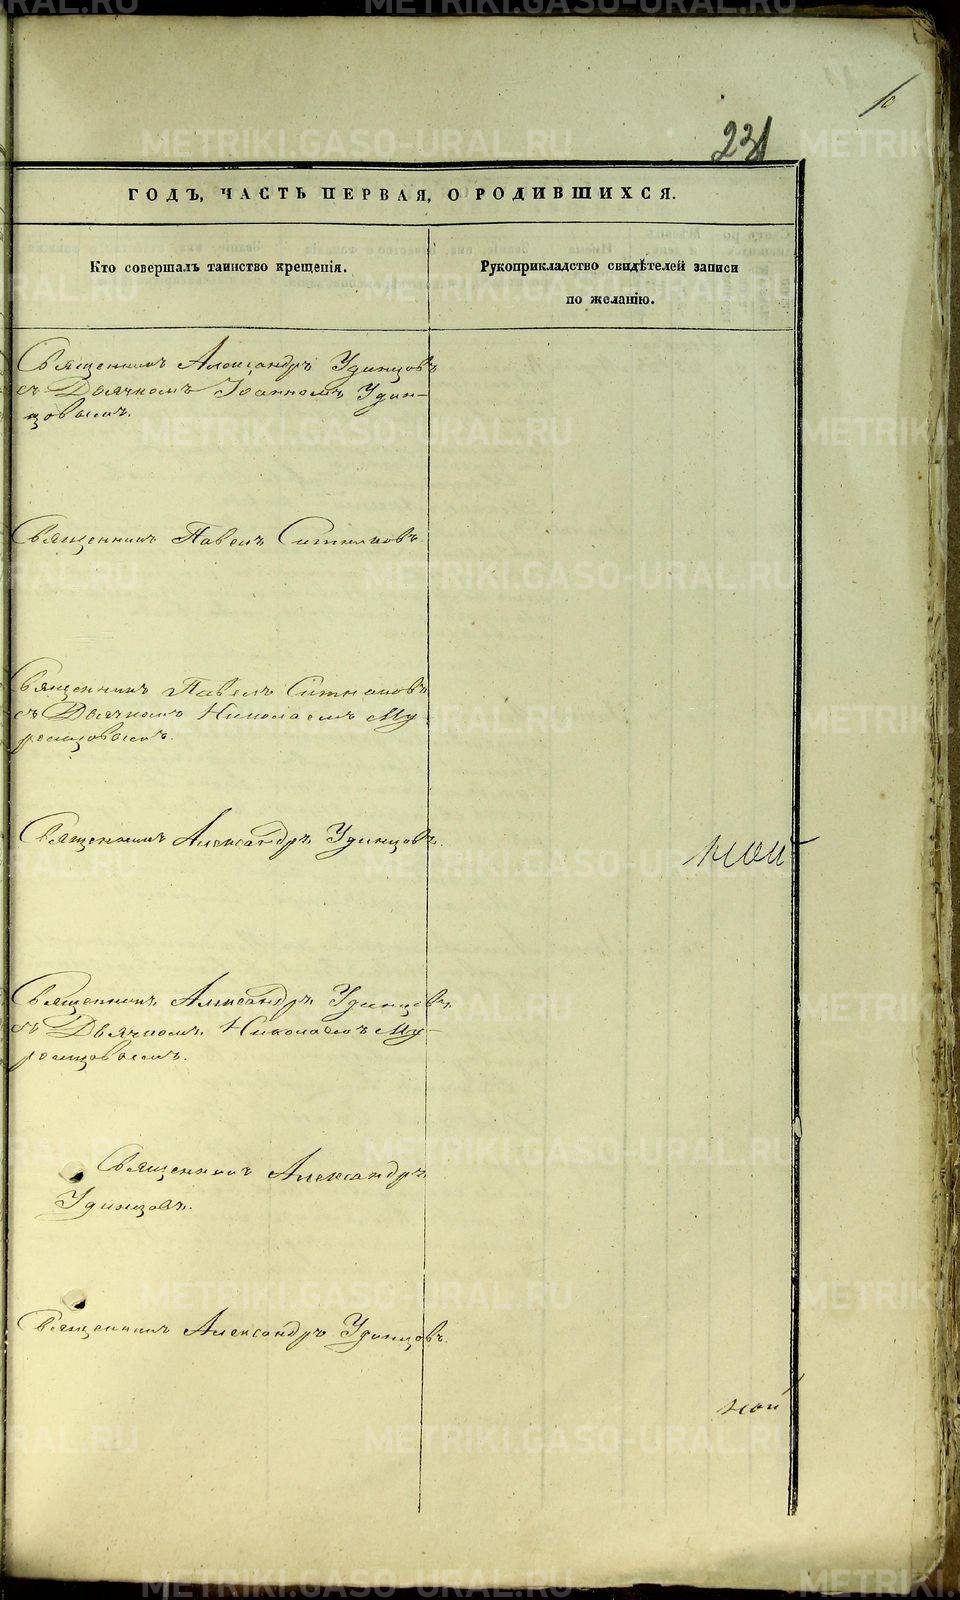 10
231
ГОДЪ, ЧАСТЬ ПЕРВАЯ, О РОДИВШИХСЯ.
Кто совершалъ таинство крещенія.
Рукоприкладство свидѣтелей записи
по желанію.
Священникъ Александръ Удинцовъ
съ Дьячкомъ Іоанномъ Удин-
цовымъ.
Священникъ Павелъ Ситниковъ.
Священникъ Павелъ Ситниковъ
съ Дьячкомъ Николаемъ Му
ромцовымъ.
Священникъ Александръ Удинцовъ.
ной
Священникъ Александръ Удинцовъ,
съ Дьячкомъ Николаемъ Му-
ромцовымъ.
Священникъ Александръ
Удинцовъ.
Священникъ Александръ Удинцовъ.
ной
METRIKI.GASO-URAL.RU